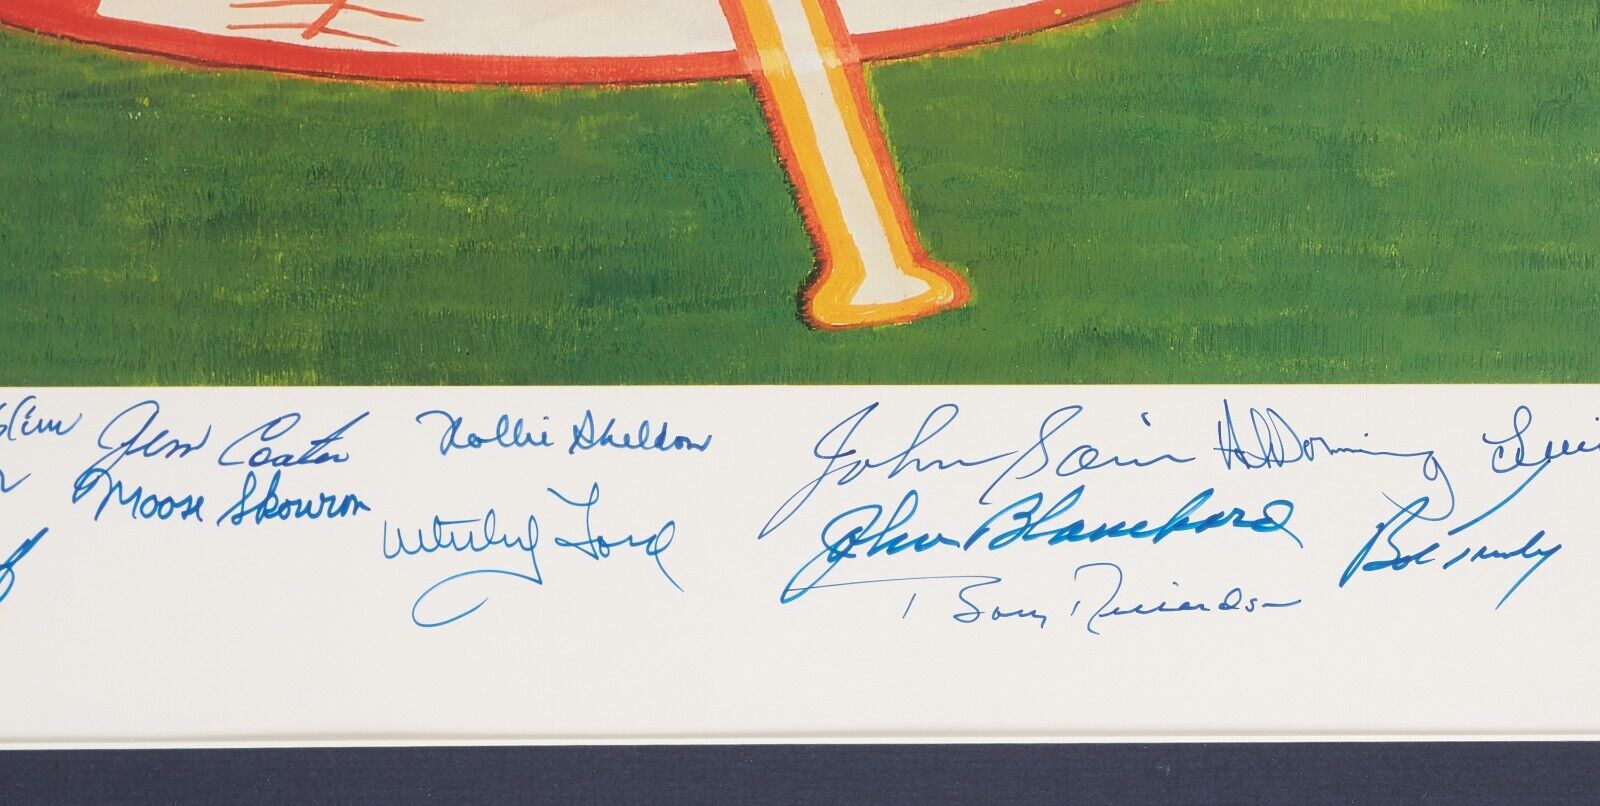 Jim Coates Rollie Sheldon John Sain Al Downing Luis
Moose Skowron Whitey Ford John Blanchard Bob Turley
Bobby Richardson